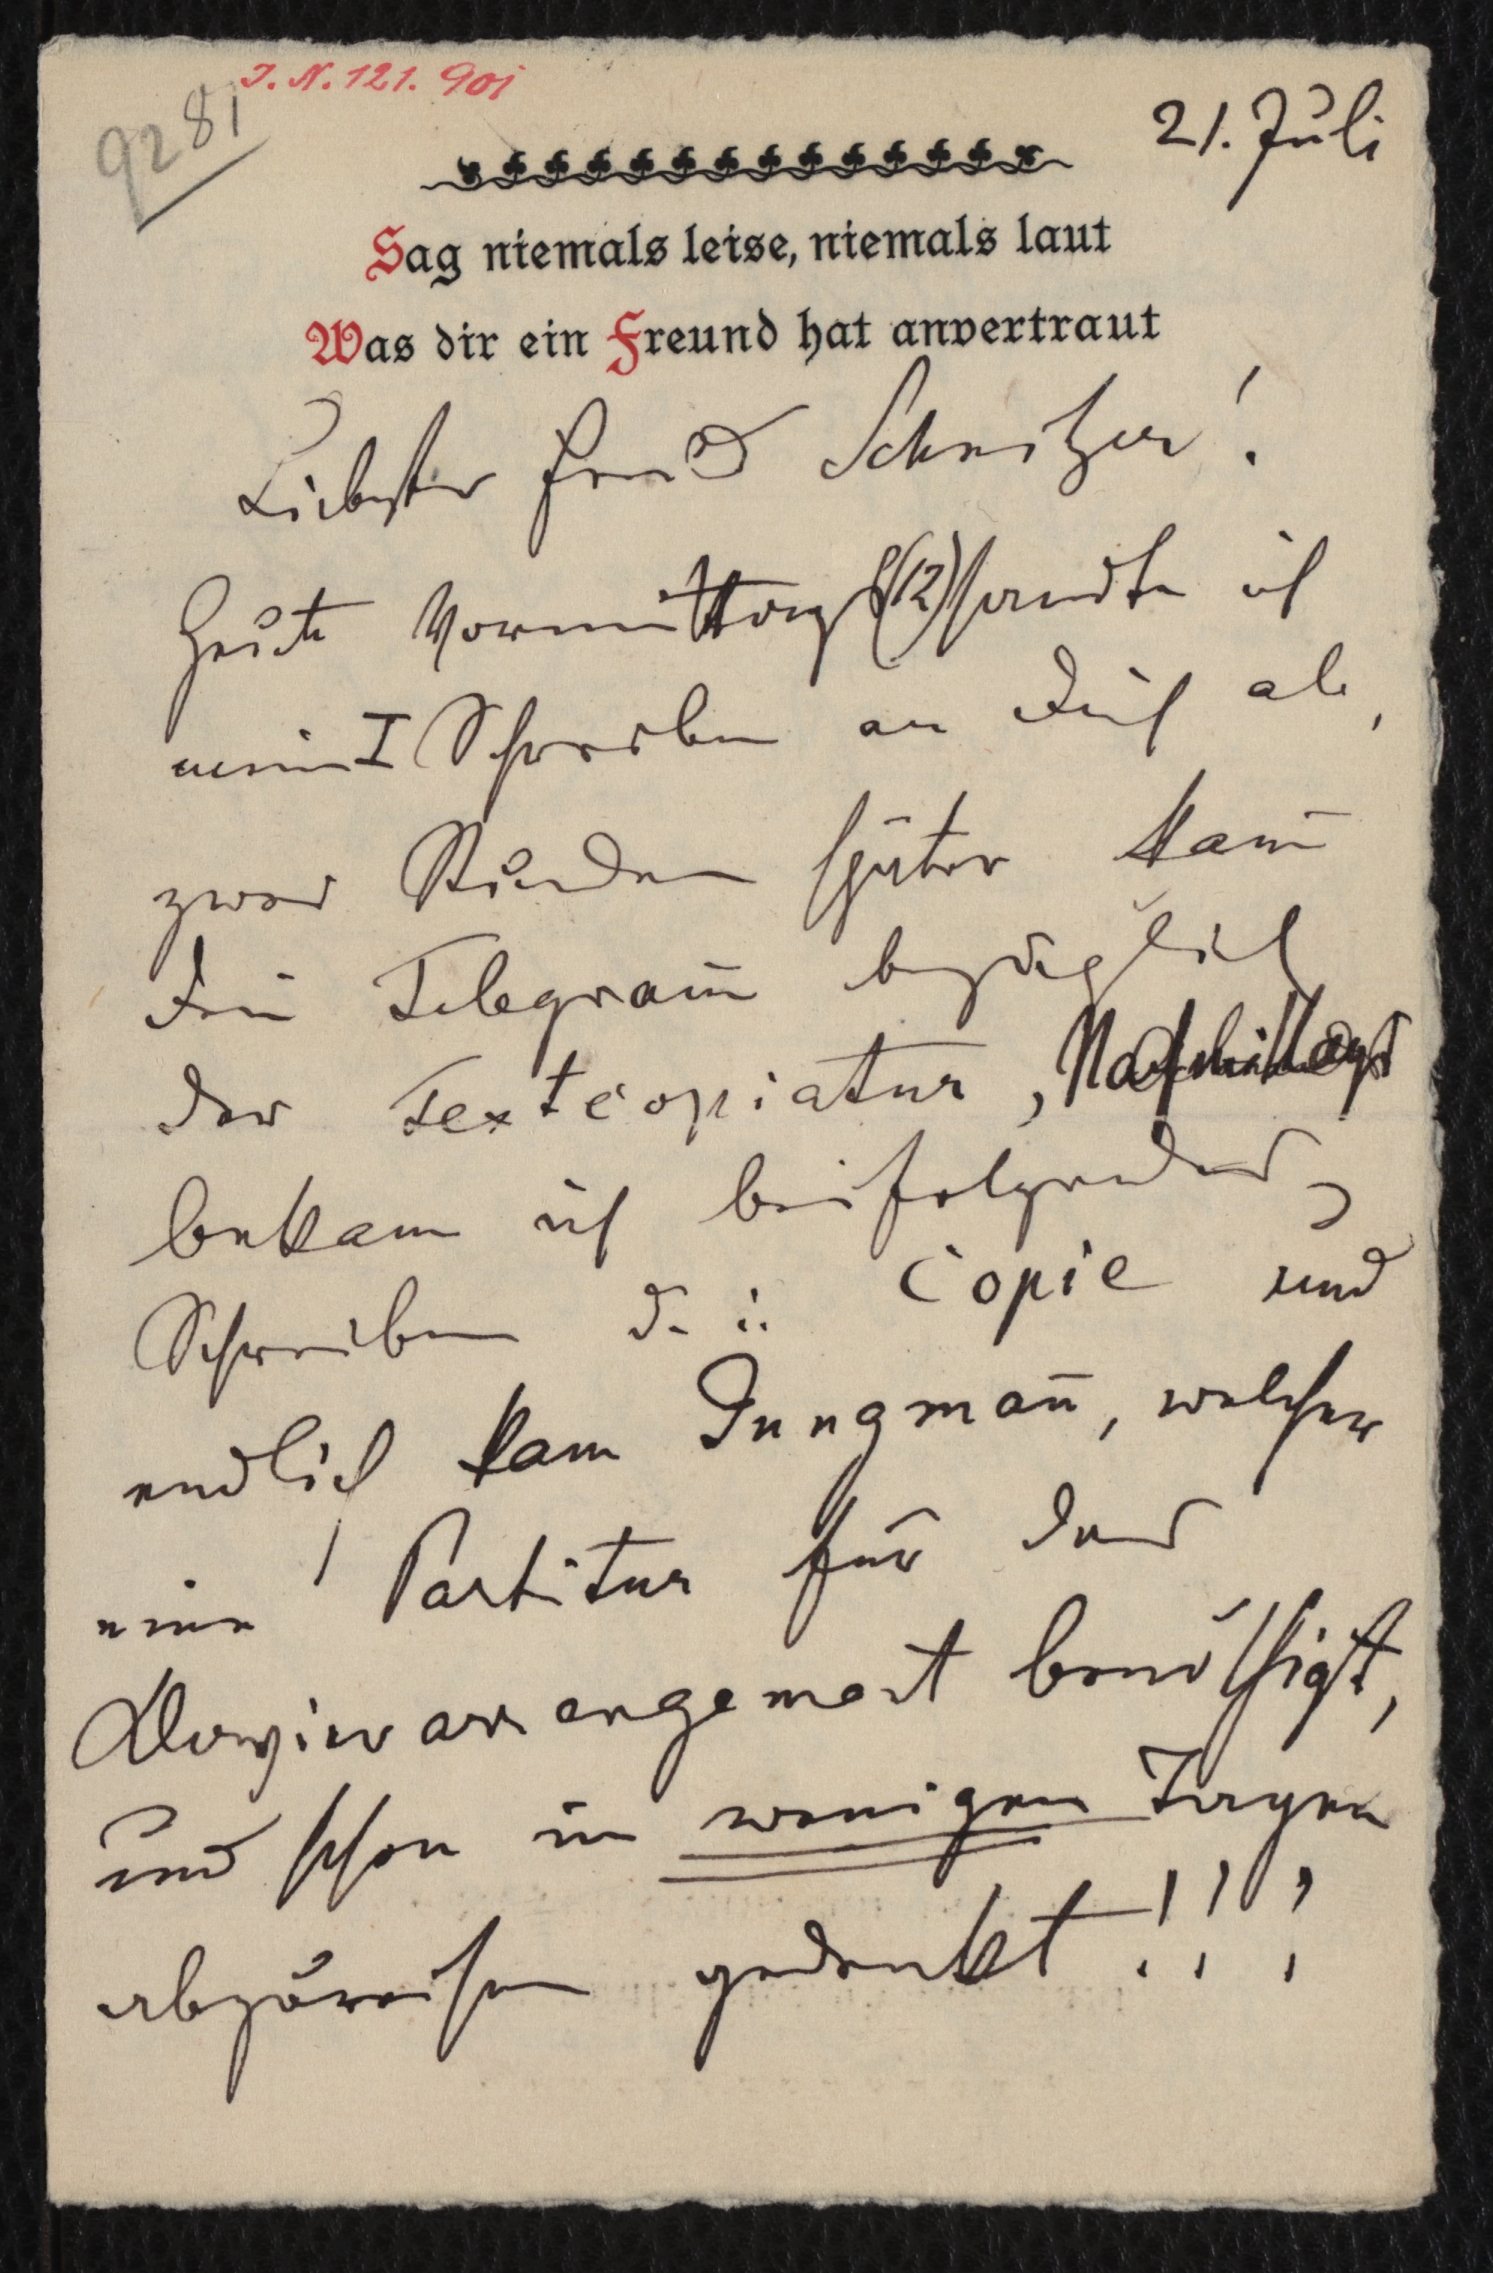 J. N. 121. 901
9281
21. Juli
Sag niemals leise, niemals laut
Was dir ein Freund hat anvertraut
Liebster Freund Schnitzer!
Heute Vormittags (12) sandte ich
mein I Schreiben an Dich ab,
zwei Stunden später kam̄
Dein Telegram̄ bezüglich
der Textcopiatur, Nachmittags
bekam ich beifolgendes
Schreiben d. i. Copie und
endlich kam Jungman̄, welcher
eine Partitur für das
Klavierarrangement benöthigt,
und schon in wenigen Tagen
abzureisen gedenkt!!!